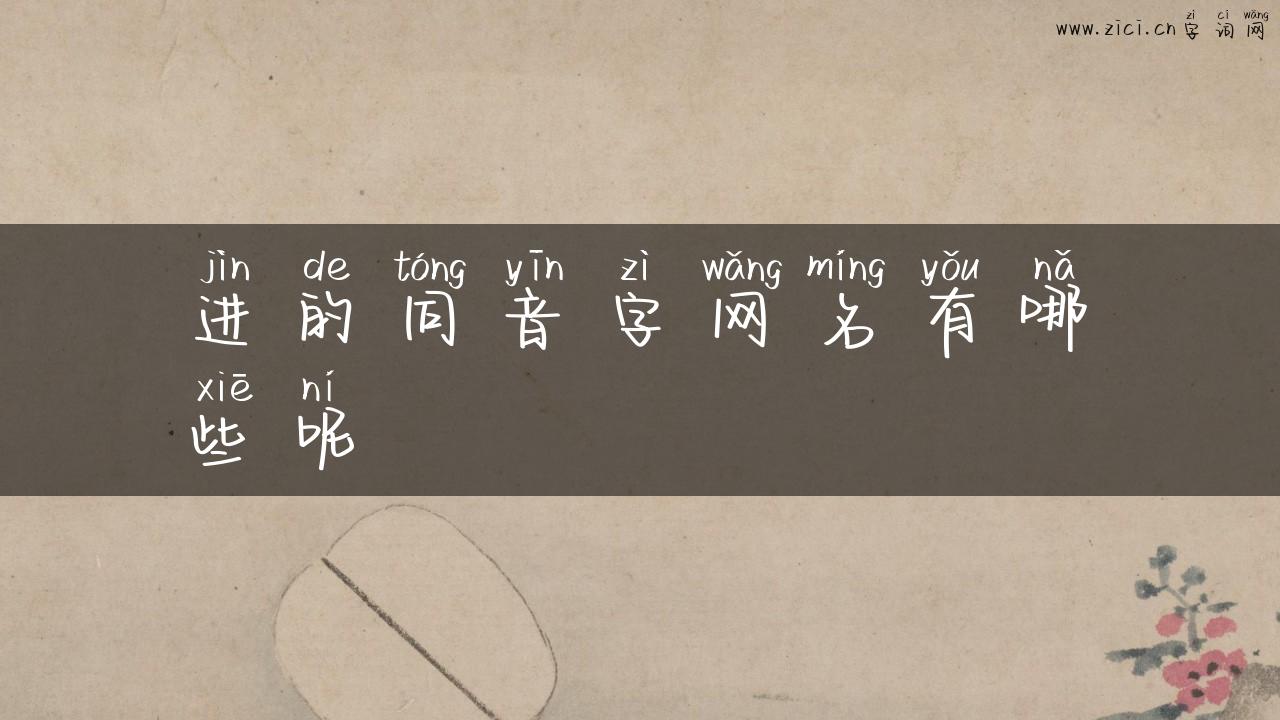 zì cí wǎng
www.zici.cn 字 词 网
jìn de tóng yīn zì wǎng míng yǒu nǎ
进 的 同 音 字 网 名 有 哪
xiē ní
些 呢